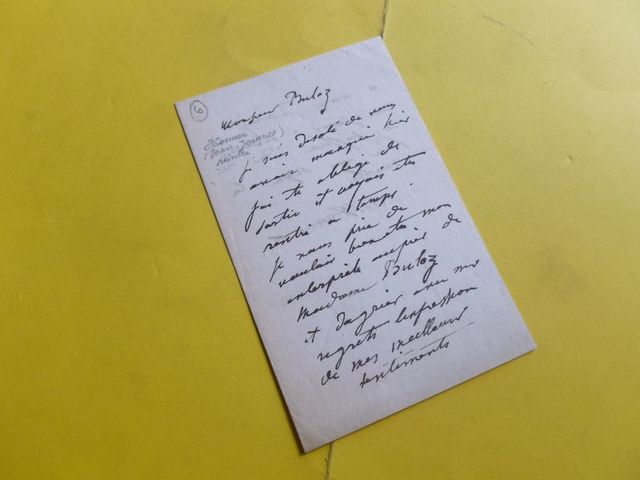 6
Monsieur Buloz
Henner
(Jean Jacques)
peintre
je suis désolé de vous
avoir manqué hier
j'ai été obligé de
sortir et croyais être
rentré à temps.
Je vous prie de
vouloir bien être mon
interprète auprès de
Madame Buloz
et d'agréer avec mes
regrets l'expression
de mes meilleurs
sentiments